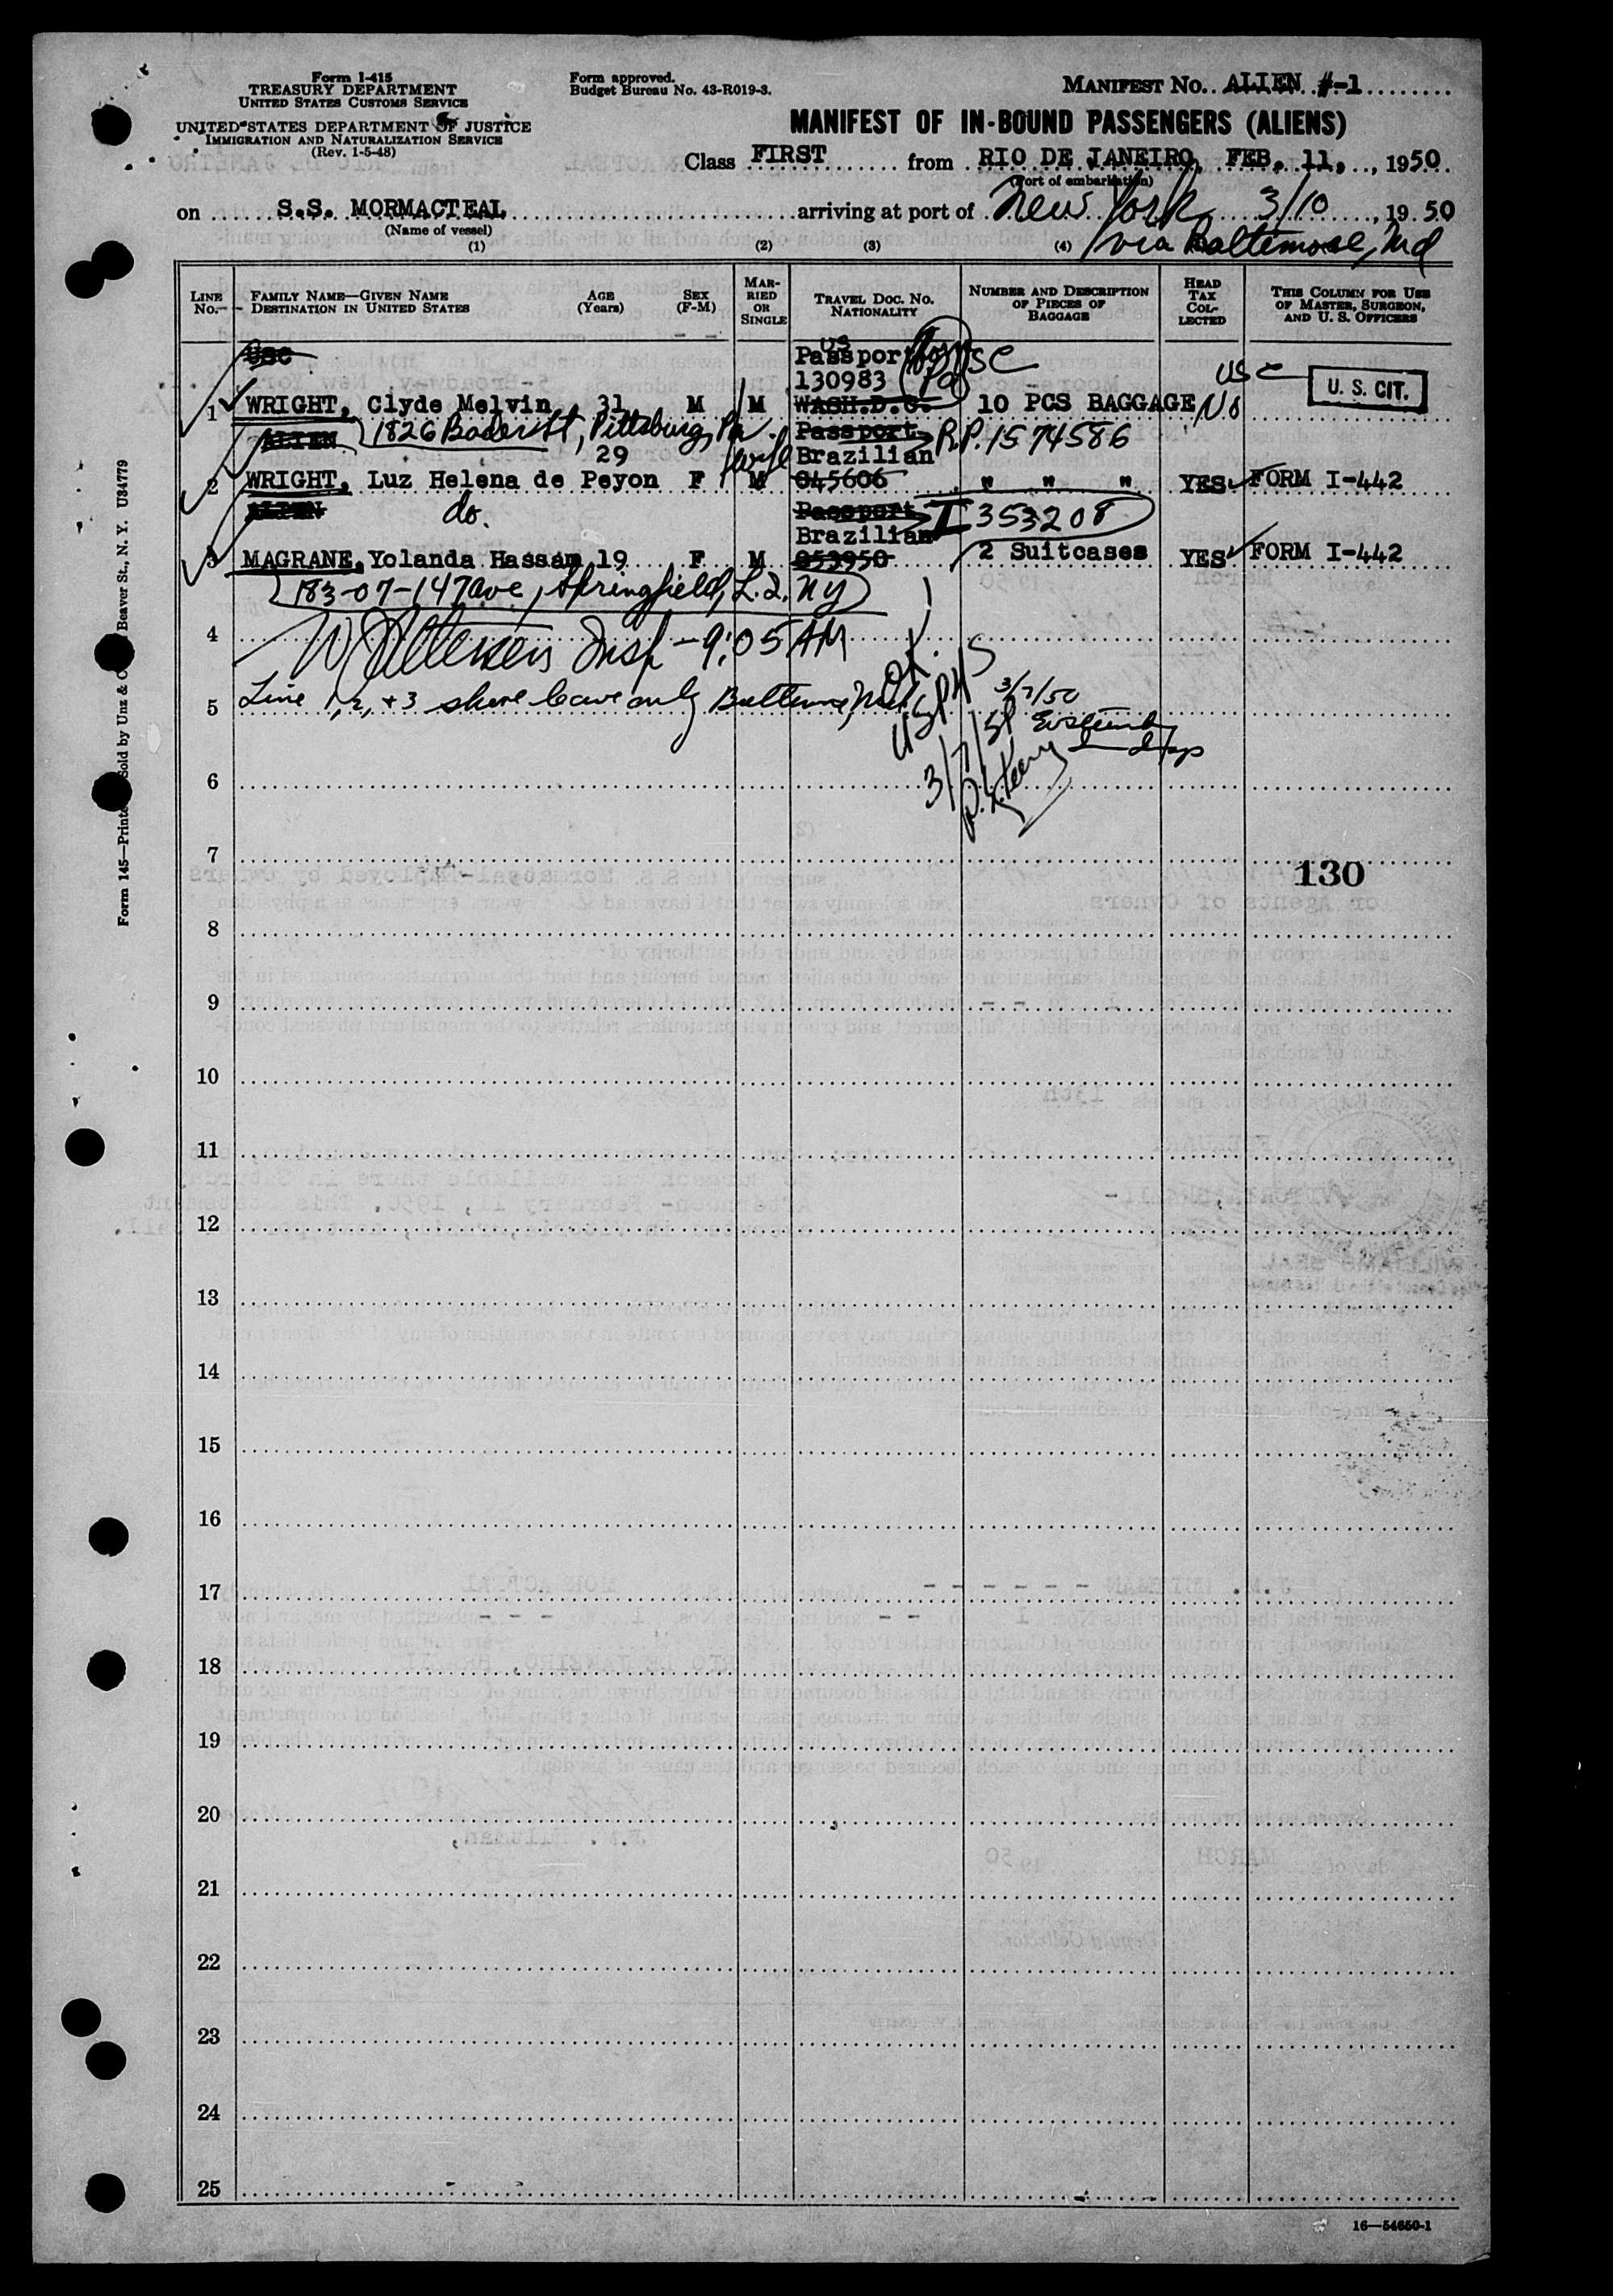 Form I-415
TREASURY DEPARTMENT
UNITED STATES CUSTOMS SERVICE
UNITED STATES DEPARTMENT OF JUSTICE
IMMIGRATION AND NATURALIZATION SERVICE
(Rev. 1-5-48)
Form approved.
Budget Bureau No. 43-R019-3.
MANIFEST NO. ALIEN #-1
MANIFEST OF IN-BOUND PASSENGERS (ALIENS)
Class FIRST from RIO DE JANEIRO, FEB. 11, , 1950
(Port of embarkation)
on S.S. MORMACTEAL arriving at port of New York 3/10 , 19 50
(Name of vessel)
via Baltimore, Md
(1) (2) (3) (4)
LINE NO. FAMILY NAME—GIVEN NAME DESTINATION IN UNITED STATES AGE (Years) SEX (F-M) MARRIED OR SINGLE TRAVEL DOC. NO. NATIONALITY NUMBER AND DESCRIPTION OF PIECES OF BAGGAGE HEAD TAX COLLECTED THIS COLUMN FOR USE OF MASTER, SURGEON, AND U. S. OFFICERS
USC US
Passport USC
130983 Pa USC U. S. CIT.
1 WRIGHT, Clyde Melvin , 31 M M WASH.D.C. 10 PCS BAGGAGE No
ALIEN 1826 St, Pittsburg, Pa. Passport R.P. 1574586
29 Brazilian
2 WRIGHT, Luz Helena de Peyon F M 045606 " " " YES FORM I-442
ALIEN do. Passport I 353208
Brazilian
3 MAGRANE, Yolanda Hassam 19 F M 053950 2 Suitcases YES FORM I-442
183-07-147 ave, Springfield, L.I. NY
4 Insp - 9:05 AM
5 Line 1, 2, + 3 shore leave only Baltimore, Md
OK. USPHS
3/7/50
3/7/50
6
7
130
8
9
10
11
12
13
14
15
16
17
18
19
20
21
22
23
24
25
16—54650-1
Form 145—Printed Sold by Unz & Co Beaver St., N. Y. U34779